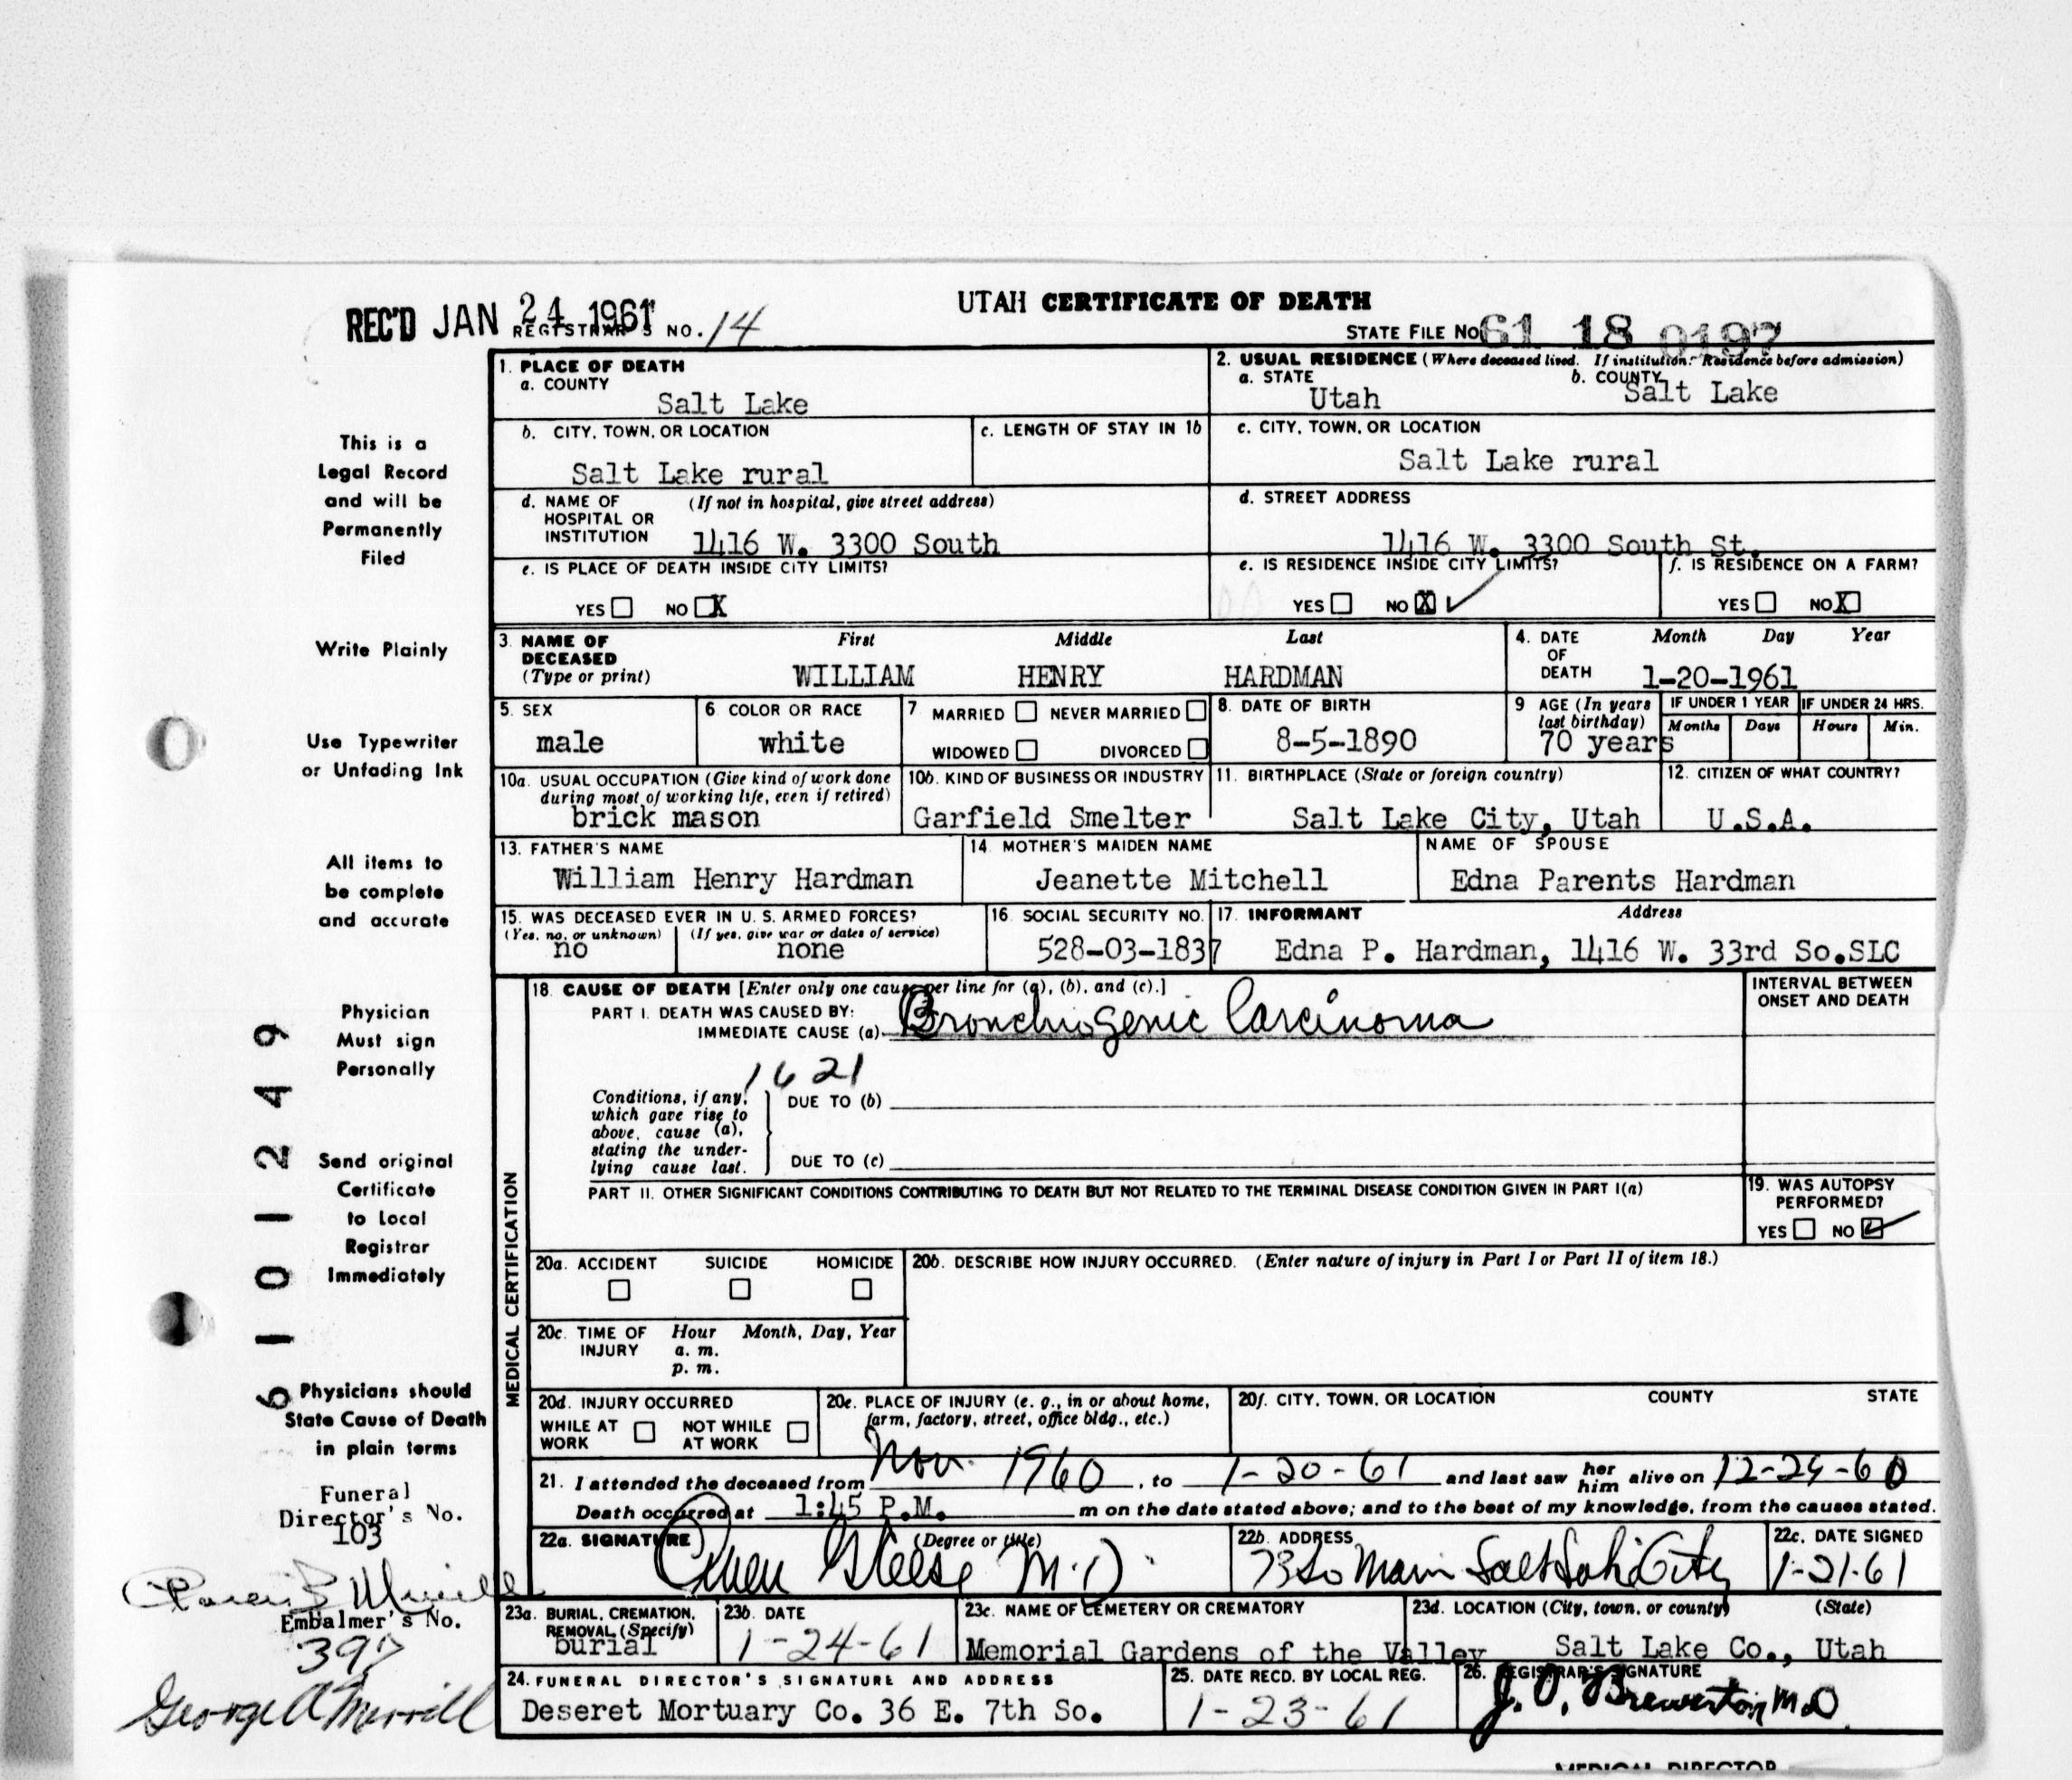 UTAH CERTIFICATE OF DEATH
REC'D JAN 24 1961 REGISTRAR'S NO. 14
STATE FILE NO. 61 18 0197
1. PLACE OF DEATH
a. COUNTY
Salt Lake
2. USUAL RESIDENCE (Where deceased lived. If institution: Residence before admission)
a. STATE b. COUNTY
Utah Salt Lake
b. CITY, TOWN, OR LOCATION
Salt Lake rural
c. LENGTH OF STAY IN 1b
c. CITY, TOWN, OR LOCATION
Salt Lake rural
d. NAME OF HOSPITAL OR INSTITUTION (If not in hospital, give street address)
1416 W. 3300 South
d. STREET ADDRESS
1416 W. 3300 South St.
e. IS PLACE OF DEATH INSIDE CITY LIMITS?
YES NO X
e. IS RESIDENCE INSIDE CITY LIMITS?
YES NO X
f. IS RESIDENCE ON A FARM?
YES NO X
3. NAME OF DECEASED (Type or print)
First Middle Last
WILLIAM HENRY HARDMAN
4. DATE OF DEATH Month Day Year
1-20-1961
5. SEX
male
6. COLOR OR RACE
white
7. MARRIED NEVER MARRIED
WIDOWED DIVORCED
8. DATE OF BIRTH
8-5-1890
9 AGE (In years last birthday)
70 years
IF UNDER 1 YEAR IF UNDER 24 HRS.
Months Days Hours Min.
10a. USUAL OCCUPATION (Give kind of work done during most of working life, even if retired)
brick mason
10b. KIND OF BUSINESS OR INDUSTRY
Garfield Smelter
11. BIRTHPLACE (State or foreign country)
Salt Lake City, Utah
12. CITIZEN OF WHAT COUNTRY?
U.S.A.
13. FATHER'S NAME
William Henry Hardman
14. MOTHER'S MAIDEN NAME
Jeanette Mitchell
NAME OF SPOUSE
Edna Parents Hardman
15. WAS DECEASED EVER IN U. S. ARMED FORCES?
(Yes, no, or unknown) (If yes, give war or dates of service)
no none
16. SOCIAL SECURITY NO.
528-03-1837
17. INFORMANT Address
Edna P. Hardman, 1416 W. 33rd So.SLC
18. CAUSE OF DEATH [Enter only one cause per line for (a), (b), and (c).]
PART I. DEATH WAS CAUSED BY:
IMMEDIATE CAUSE (a) Bronchiogenic Carcinoma
INTERVAL BETWEEN
ONSET AND DEATH
1621
Conditions, if any,
which gave rise to
above, cause (a),
stating the under-
lying cause last.
DUE TO (b)
DUE TO (c)
PART II. OTHER SIGNIFICANT CONDITIONS CONTRIBUTING TO DEATH BUT NOT RELATED TO THE TERMINAL DISEASE CONDITION GIVEN IN PART I(a)
19. WAS AUTOPSY PERFORMED?
YES NO
20a. ACCIDENT SUICIDE HOMICIDE
20b. DESCRIBE HOW INJURY OCCURRED. (Enter nature of injury in Part I or Part II of item 18.)
20c. TIME OF INJURY Hour Month, Day, Year
a. m.
p. m.
20d. INJURY OCCURRED
WHILE AT WORK NOT WHILE AT WORK
20e. PLACE OF INJURY (e. g., in or about home, farm, factory, street, office bldg., etc.)
20f. CITY, TOWN, OR LOCATION COUNTY STATE
21. I attended the deceased from Nov. 1960, to 1-20-61 and last saw her him alive on 12-29-60
Death occurred at 1:45 P.M. m on the date stated above; and to the best of my knowledge, from the causes stated.
22a. SIGNATURE (Degree or title)
Owen Reese M.D.
22b. ADDRESS
73 So Main Salt Lake City
22c. DATE SIGNED
1-21-61
23a. BURIAL, CREMATION, REMOVAL (Specify)
burial
23b. DATE
1-24-61
23c. NAME OF CEMETERY OR CREMATORY
Memorial Gardens of the Valley
23d. LOCATION (City, town, or county) (State)
Salt Lake Co., Utah
24. FUNERAL DIRECTOR'S SIGNATURE AND ADDRESS
Deseret Mortuary Co. 36 E. 7th So.
25. DATE RECD. BY LOCAL REG.
1-23-61
26. REGISTRAR'S SIGNATURE
J. O. Brewerton M.D.
MEDICAL DIRECTOR
MEDICAL CERTIFICATION
This is a
Legal Record
and will be
Permanently
Filed
Write Plainly
Use Typewriter
or Unfading Ink
All items to
be complete
and accurate
Physician
Must sign
Personally
Send original
Certificate
to Local
Registrar
Immediately
Physicians should
State Cause of Death
in plain terms
Funeral
Director's No.
103
Embalmer's No.
397
George A Merrill
6101249